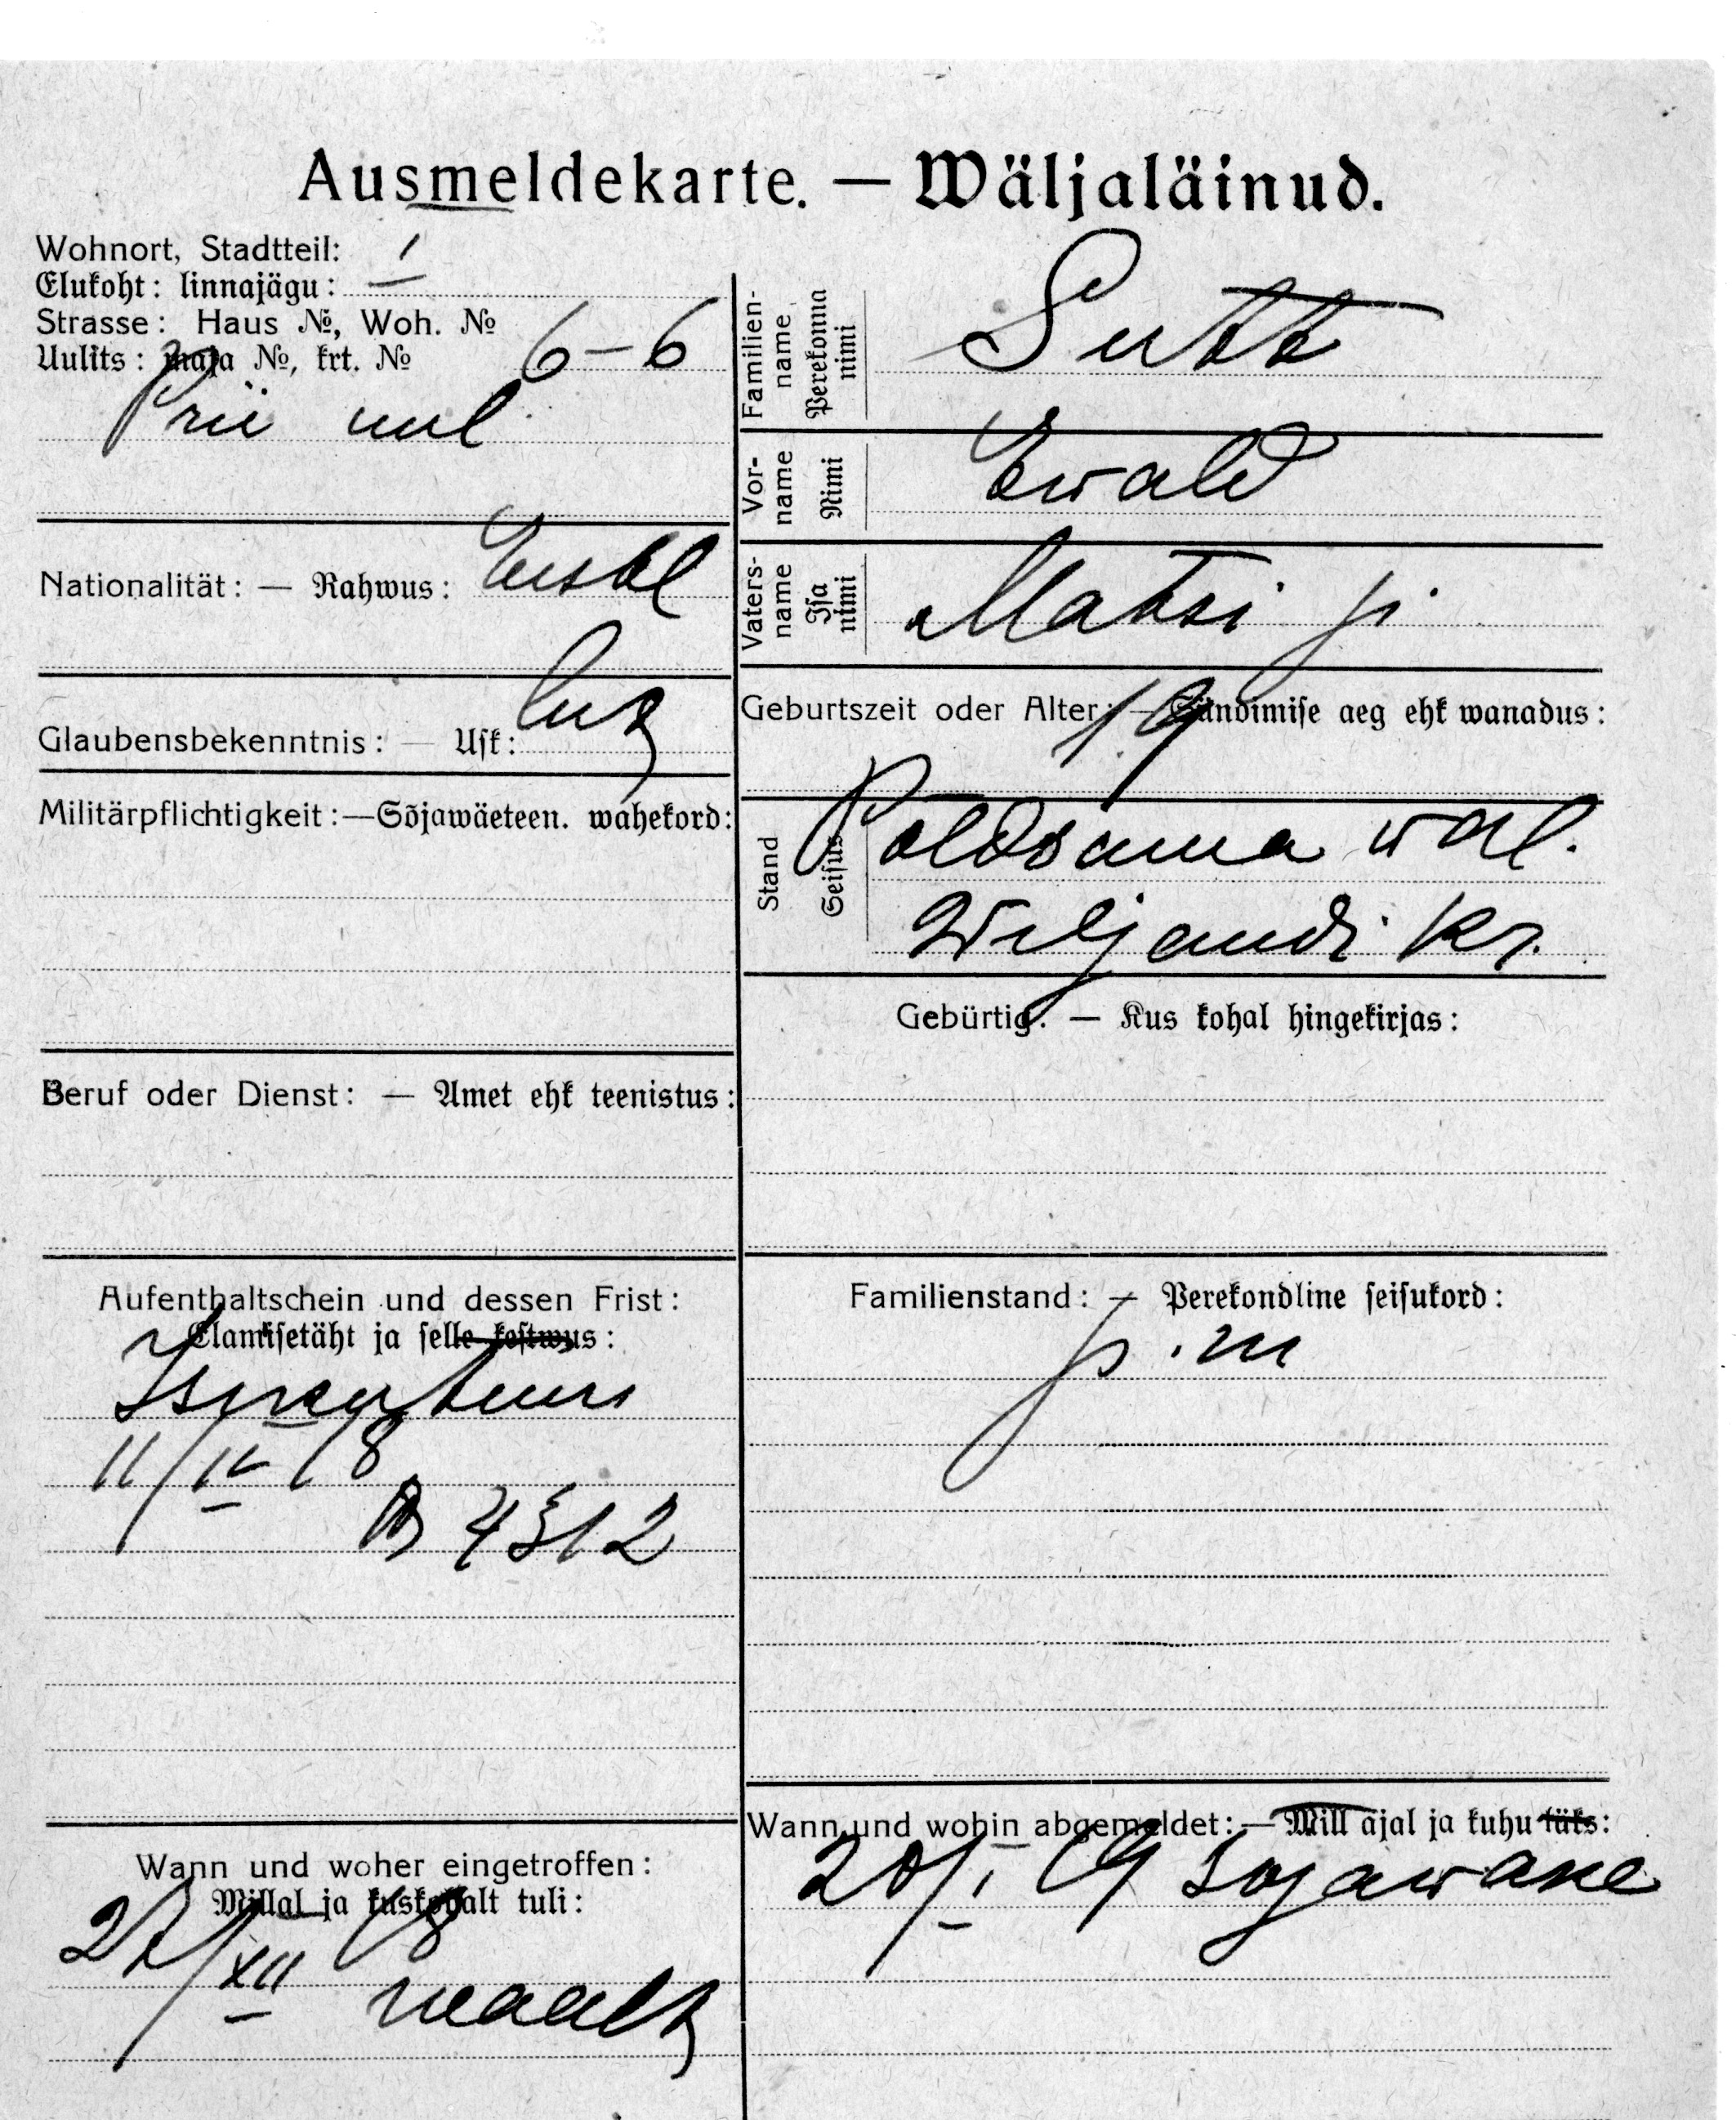 Ausmeldekarte. — Wäljaläinud.
Wohnort, Stadtteil: I
Elukoht: linnajägu:
Strasse: Haus №, Woh. №
Uulits: maja №, krt. № 6-6
Prii uul
Nationalität: — Rahwus: Eestl
Glaubensbekenntnis: — Usk: lut
Militärpflichtigkeit:—Sõjawäeteen. wahekord:
Beruf oder Dienst: — Amet ehk teenistus:
Aufenthaltschein und dessen Frist:
Elamisetäht ja selle kestwus:
Isikutun
11/IV 18
B 4312
Wann und woher eingetroffen:
Millal ja kuskohalt tuli:
27/XII 18
maalt
Familien-name Perekonna nimi Sutt
Vor-name Nimi Ewald
Vaters-name Isa nimi Matsi p.
Geburtszeit oder Alter: — Sündimise aeg ehk wanadus:
19
Stand Seisus Põldsama wal.
Wiljandi kr.
Gebürtig: — Kus kohal hingekirjas:
Familienstand: — Perekondline seisukord:
p. m
Wann und wohin abgemeldet:— Mill ajal ja kuhu läks:
20/I 19 Sojawäke